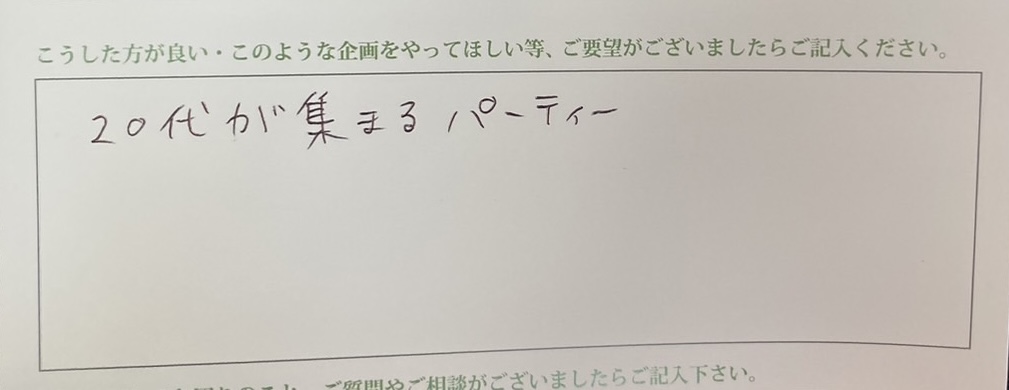 こうした方が良い・このような企画をやってほしい等、ご要望がございましたらご記入ください。
20代が集まるパーティー
ご質問やご相談がございましたらご記入下さい。